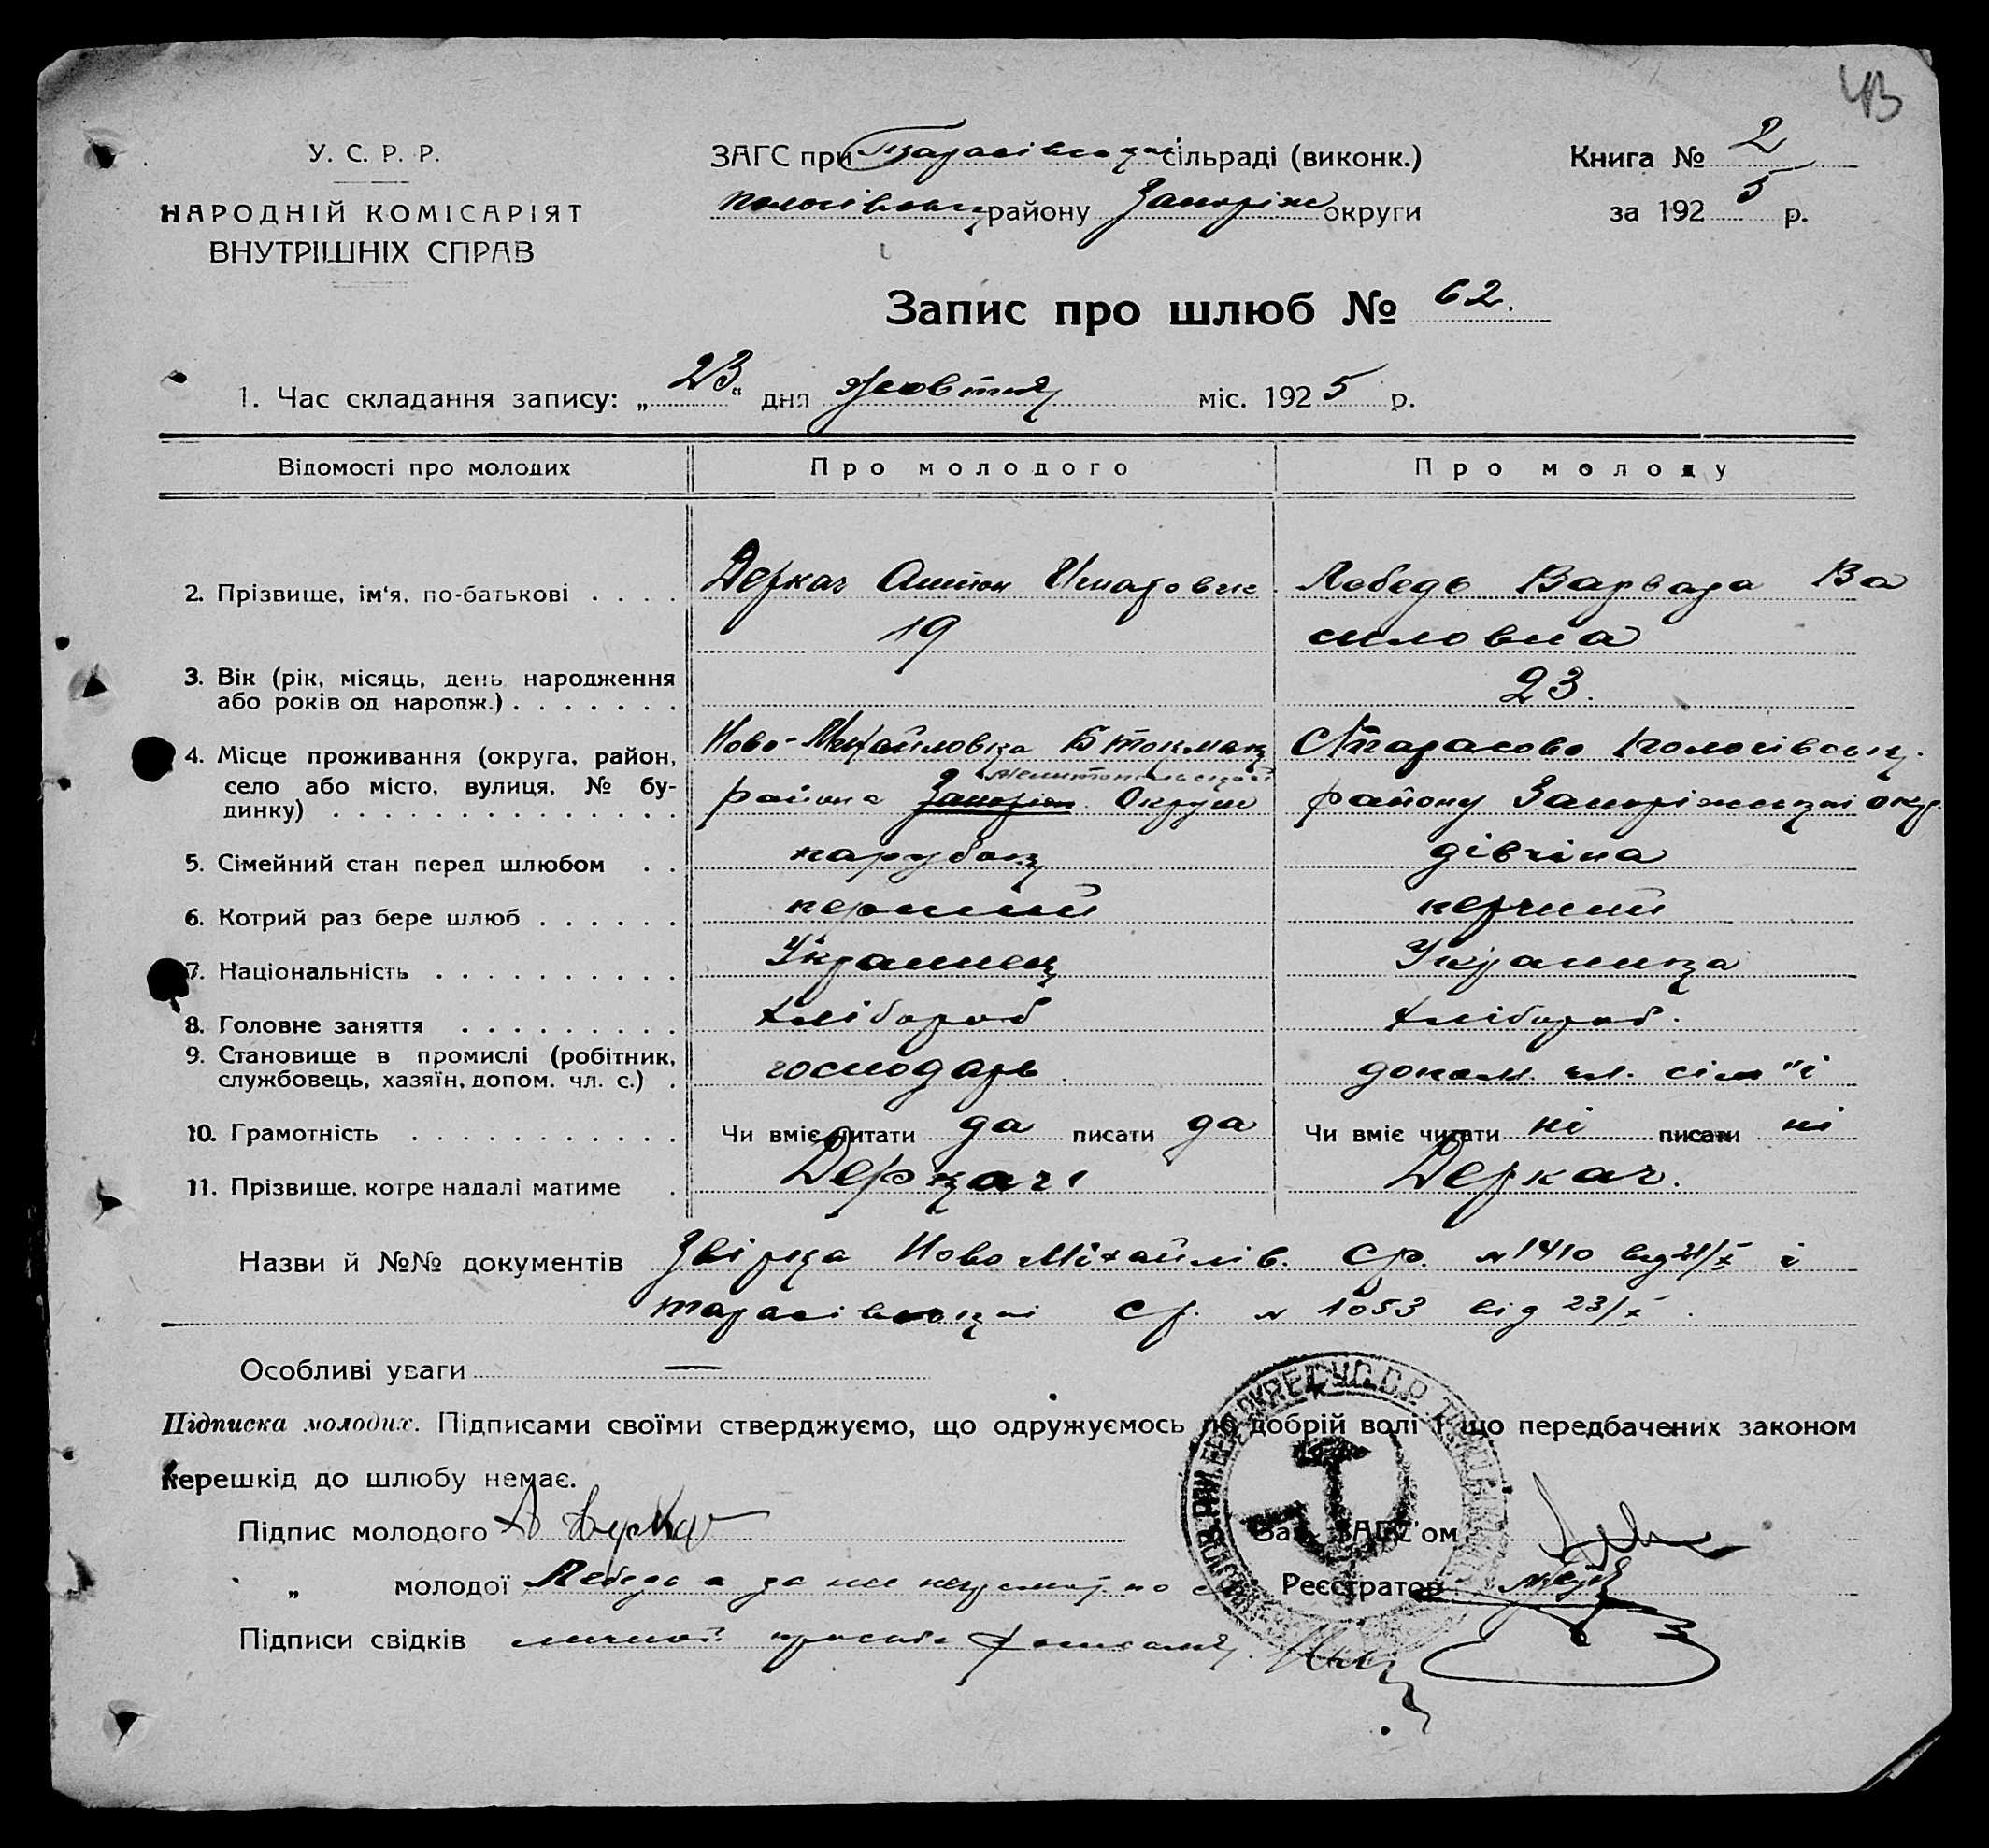 43
У. С. Р. Р.
НАРОДНІЙ КОМІСАРІЯТ
ВНУТРІШНІХ СПРАВ
ЗАГС при Тарасівськ сільраді (виконк.)
Пологівськ району Запоріж округи
Книга № 2
за 1925 р.
Запис про шлюб № 62.
1. Час складання запису: „23“ дня Жовтня міс. 1925 р.
Відомості про молодих Про молодого Про молоду
2. Прізвище, ім'я, по-батькові . . . . Деркач Антон Лебедь Варвара Ва
19 силовна
3. Вік (рік, місяць, день народження
або років од народж.) . . . . . . . 23.
4. Місце проживання (округа, район, Ново-Михайловка Б Токмак Тарасово Пологівськ.
село або місто, вулиця, № бу- Мелитопільської
динку) . . . . . . . . . . . . . . . района Запоріж Округи району Запоріжськоі окр.
5. Сімейний стан перед шлюбом . . парубок дівчина
6. Котрий раз бере шлюб . . . . . . перший перший
7. Національність . . . . . . . . . . Українец Українка
8. Головне заняття . . . . . . . . . хлібороб хлібороб.
9. Становище в промислі (робітник,
службовець, хазяїн, допом. чл. с.) . господарь допом. чл. сім"і
10. Грамотність . . . . . . . . . . . Чи вміє читати да писати да Чи вміє читати ні писати ні
11. Прізвище, котре надалі матиме . Деркач Деркач.
Назви й №№ документів Звірка Ново Міхайлів. Ср. № 1410 від 21/X і
тарасівської Ср. № 1053 від 23/X.
Особливі уваги —
Підписка молодих. Підписами своїми стверджуємо, що одружуємось по добрій волі і що передбачених законом
перешкід до шлюбу немає.
Підпис молодого А Деркач Зав. ЗАГС'ом
„ молодої Лебедь а за не по Реєстратор
Підписи свідків личной просьбе